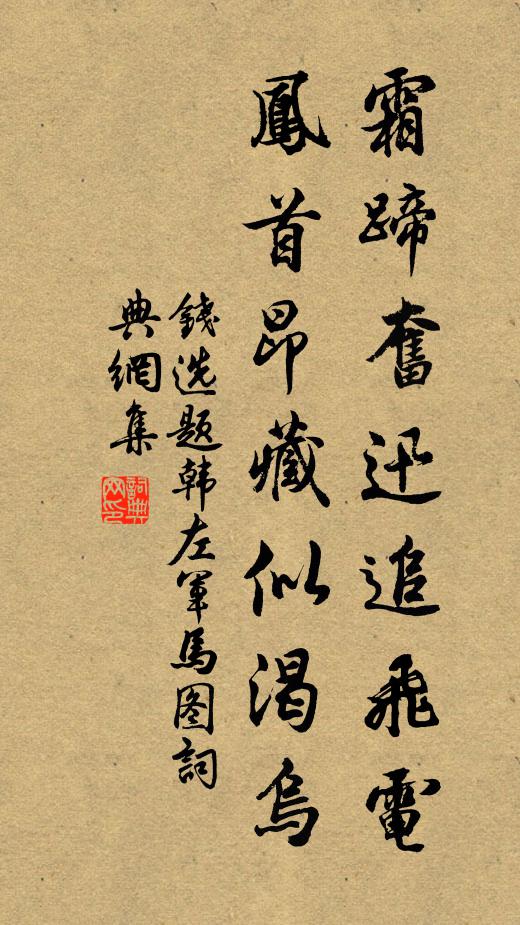 霜蹄奮迅追飛電
鳳首昂藏似渴烏
錢选題韩左軍馬图詞
典網集
詞典
网印